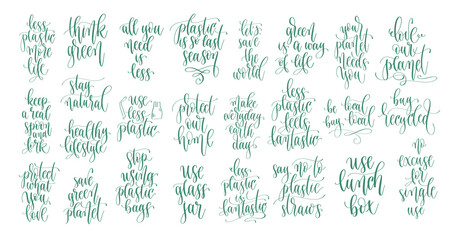 less
plastic
more
life
think
green
all you
need
is
less
plastic
is so last
season
let's
save
the
world
green
is a way
of life
your
planet
needs
you
love
our
planet
keep
a real
spoon
and
fork
stay
natural
healthy
lifestyle
use
less
plastic
protect
our
home
make
everyday
earth
day
less
plastic
feels
fantastic
be local
buy local
buy
recycled
protect
what
you
love
save
green
planet
stop
using
plastic
bags
use
glass
jar
less
plastic
is
fantastic
say no to
plastic
straws
use
lunch
box
no
excuse
for
single
use